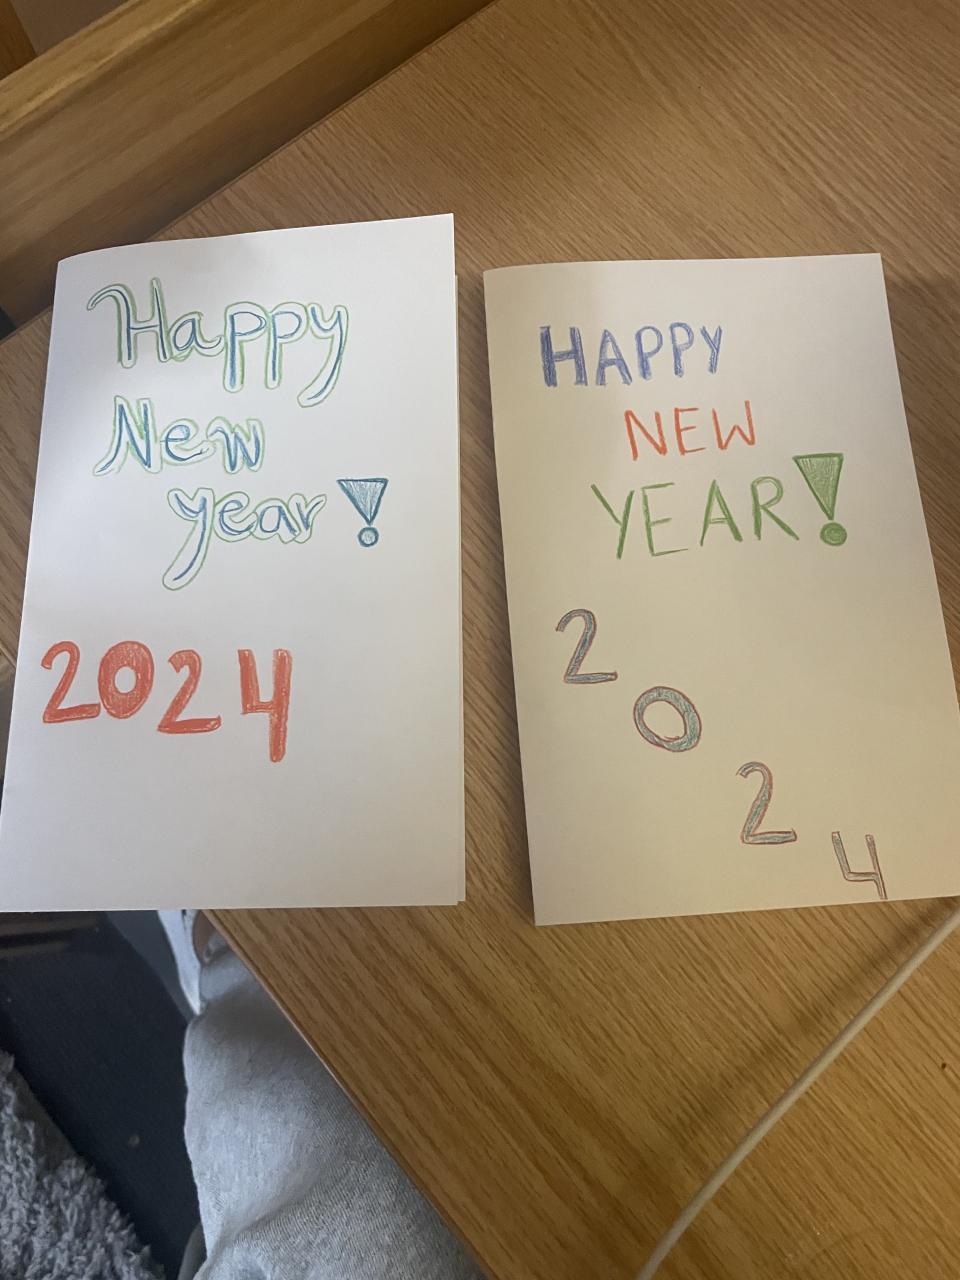 Happy
New
year!
2024
HAPPY
NEW
YEAR!
2
0
2
4